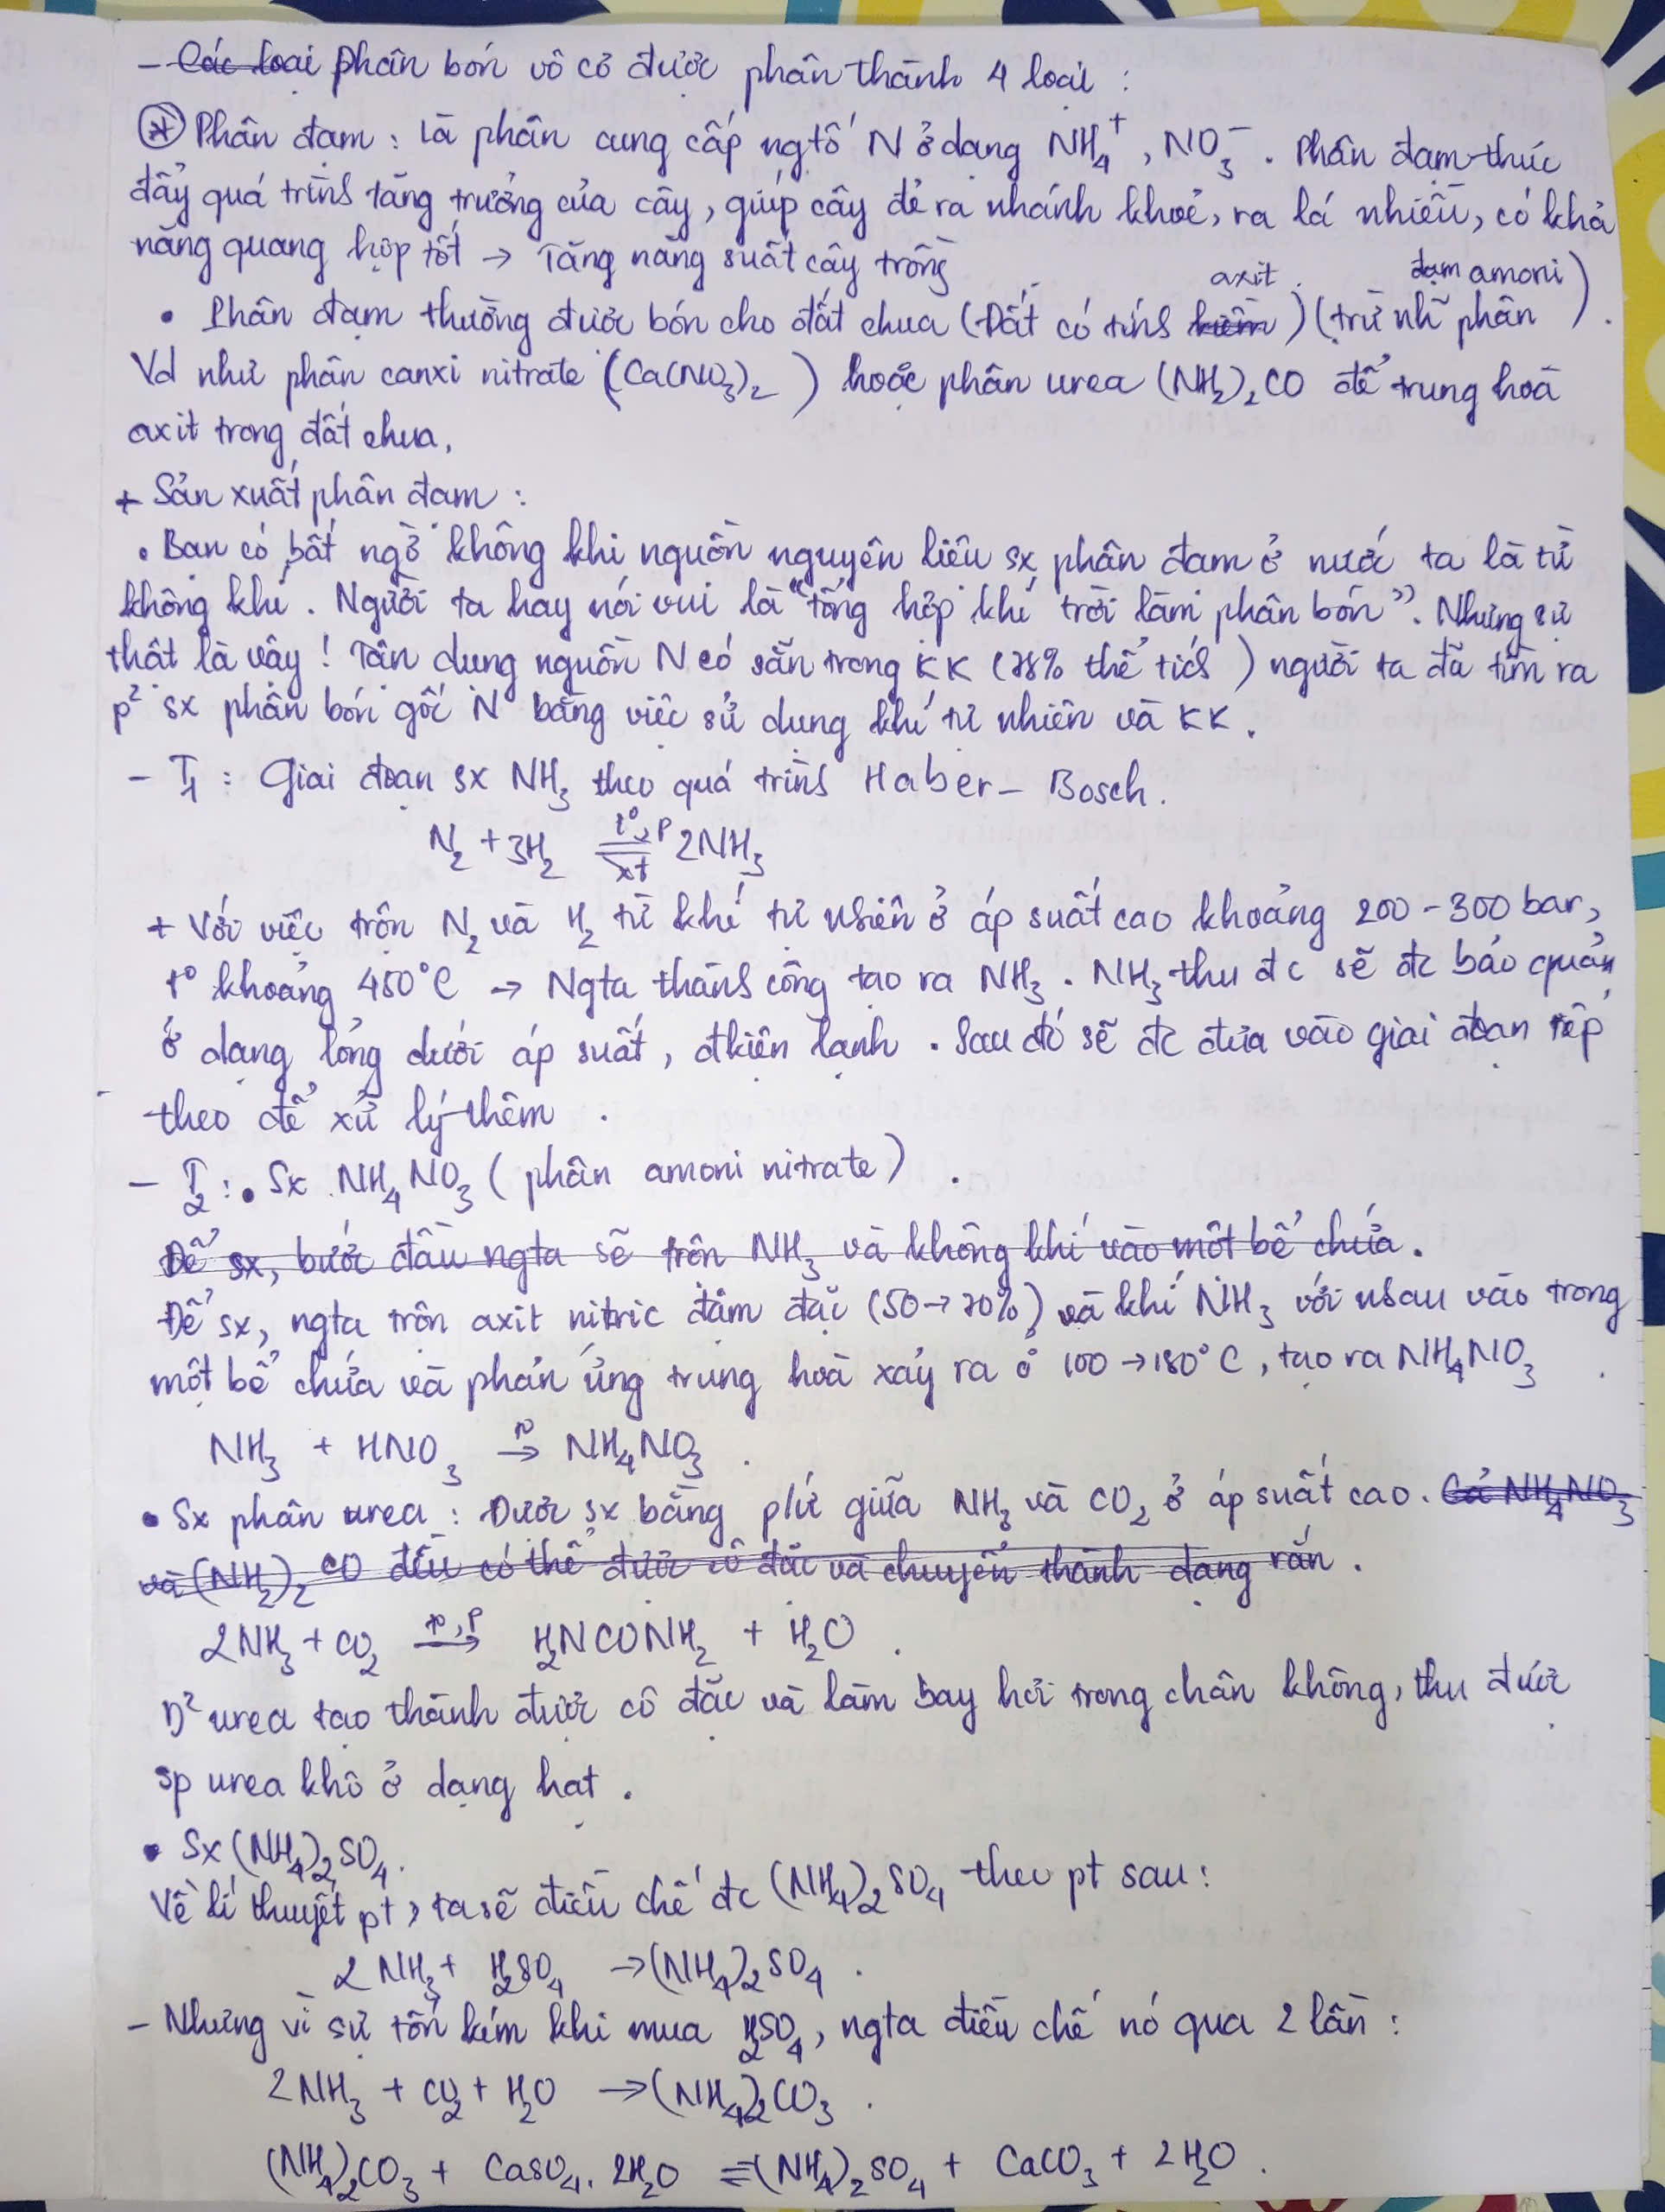 - Các loại phân bón vô cơ được phân thành 4 loại :
* Phân đạm : là phân cung cấp ngtố N ở dạng NH₄⁺, NO₃⁻. Phân đạm thúc
đẩy quá trình tăng trưởng của cây, giúp cây đẻ ra nhánh khoẻ, ra lá nhiều, có khả
năng quang hợp tốt → Tăng năng suất cây trồng
• Phân đạm thường được bón cho đất chua (Đất có tính kiềm axit) (trừ nh~ phân đạm amoni).
Vd như phân canxi nitrate (Ca(NO₃)₂) hoặc phân urea (NH₂)₂CO để trung hoà
axit trong đất chua.
+ Sản xuất phân đạm :
• Bạn có bất ngờ không khi nguồn nguyên liệu sx phân đạm ở nước ta là từ
không khí. Người ta hay nói vui là "tổng hợp khí trời làm phân bón". Nhưng sự
thật là vậy ! Tận dụng nguồn N có sẵn trong KK (78% thể tích) người ta đã tìm ra
p² sx phân bón gốc N bằng việc sử dụng khí tự nhiên và KK.
- T₁ : Giai đoạn sx NH₃ theo quá trình Haber - Bosch.
N₂ + 3H₂ ⇌ 2NH₃ t°, P xt
+ Với việc trộn N₂ và H₂ từ khí tự nhiên ở áp suất cao khoảng 200 - 300 bar,
t° khoảng 450°C → Ngta thành công tạo ra NH₃. NH₃ thu đc sẽ đc bảo quản
ở dạng lỏng dưới áp suất, đkiện lạnh. Sau đó sẽ đc đưa vào giai đoạn tiếp
theo để xử lý thêm .
- T₂ : • Sx NH₄NO₃ (phân amoni nitrate) .
Để sx, bước đầu ngta sẽ trộn NH₃ và không khí vào một bể chứa.
Để sx, ngta trộn axit nitric đậm đặc (50 → 70%) và khí NH₃ với nhau vào trong
một bể chứa và phản ứng trung hoà xảy ra ở 100 → 180°C, tạo ra NH₄NO₃ .
NH₃ + HNO₃ → NH₄NO₃ .
• Sx phân urea : Được sx bằng pứ giữa NH₃ và CO₂ ở áp suất cao. Cả NH₄NO₃
và (NH₂)₂CO đều có thể được cô đặc và chuyển thành dạng rắn .
2NH₃ + CO₂ →(t°, P) H₂NCONH₂ + H₂O .
D² urea tạo thành được cô đặc và làm bay hơi trong chân không, thu được
sp urea khô ở dạng hạt .
• Sx (NH₄)₂SO₄.
Về lí thuyết pt, ta sẽ điều chế đc (NH₄)₂SO₄ theo pt sau :
2NH₃ + H₂SO₄ → (NH₄)₂SO₄ .
- Nhưng vì sự tốn kém khi mua H₂SO₄, ngta điều chế nó qua 2 lần :
2NH₃ + CO₂ + H₂O → (NH₄)₂CO₃ .
(NH₄)₂CO₃ + CaSO₄.2H₂O ⇌ (NH₄)₂SO₄ + CaCO₃ + 2H₂O .